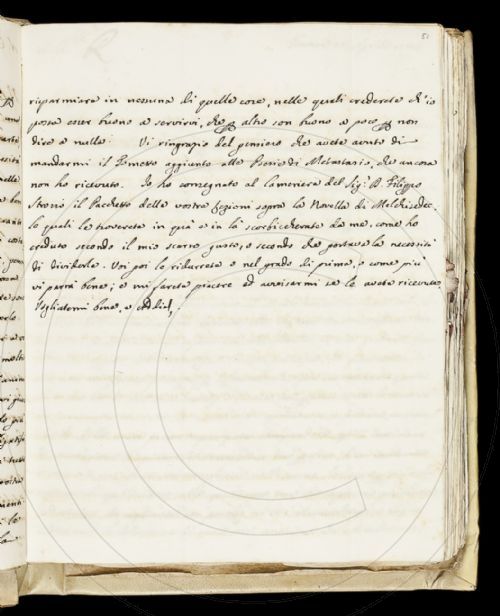 51
risparmiare in nessuna di quelle cose, nelle quali crederete ch'io
possa esser buono a servirvi, che altro son buono a poco non
dire a nulla. Vi ringrazio del pensiero che avete avuto di
mandarmi il Pometto aggiunto alle Poesie di Metastasio, che ancora
non ho ricevuto. Io ho consegnato al cameriere del Sigr D. Filippo
Strozzi il Pacchetto delle vostre Lezioni sopra la Novella di Melchisedec.
le quali le troverete in quà e in là scorbiccherate da me, come ho
creduto secondo il mio scarso gusto, e secondo che portava la necessità
di dividerle. Voi poi le ridurrete e nel grado di prima, e come più
vi parrà bene; e mi farete piacere ad avvisarmi se le avete ricevute
Vogliatemi bene, e addio.